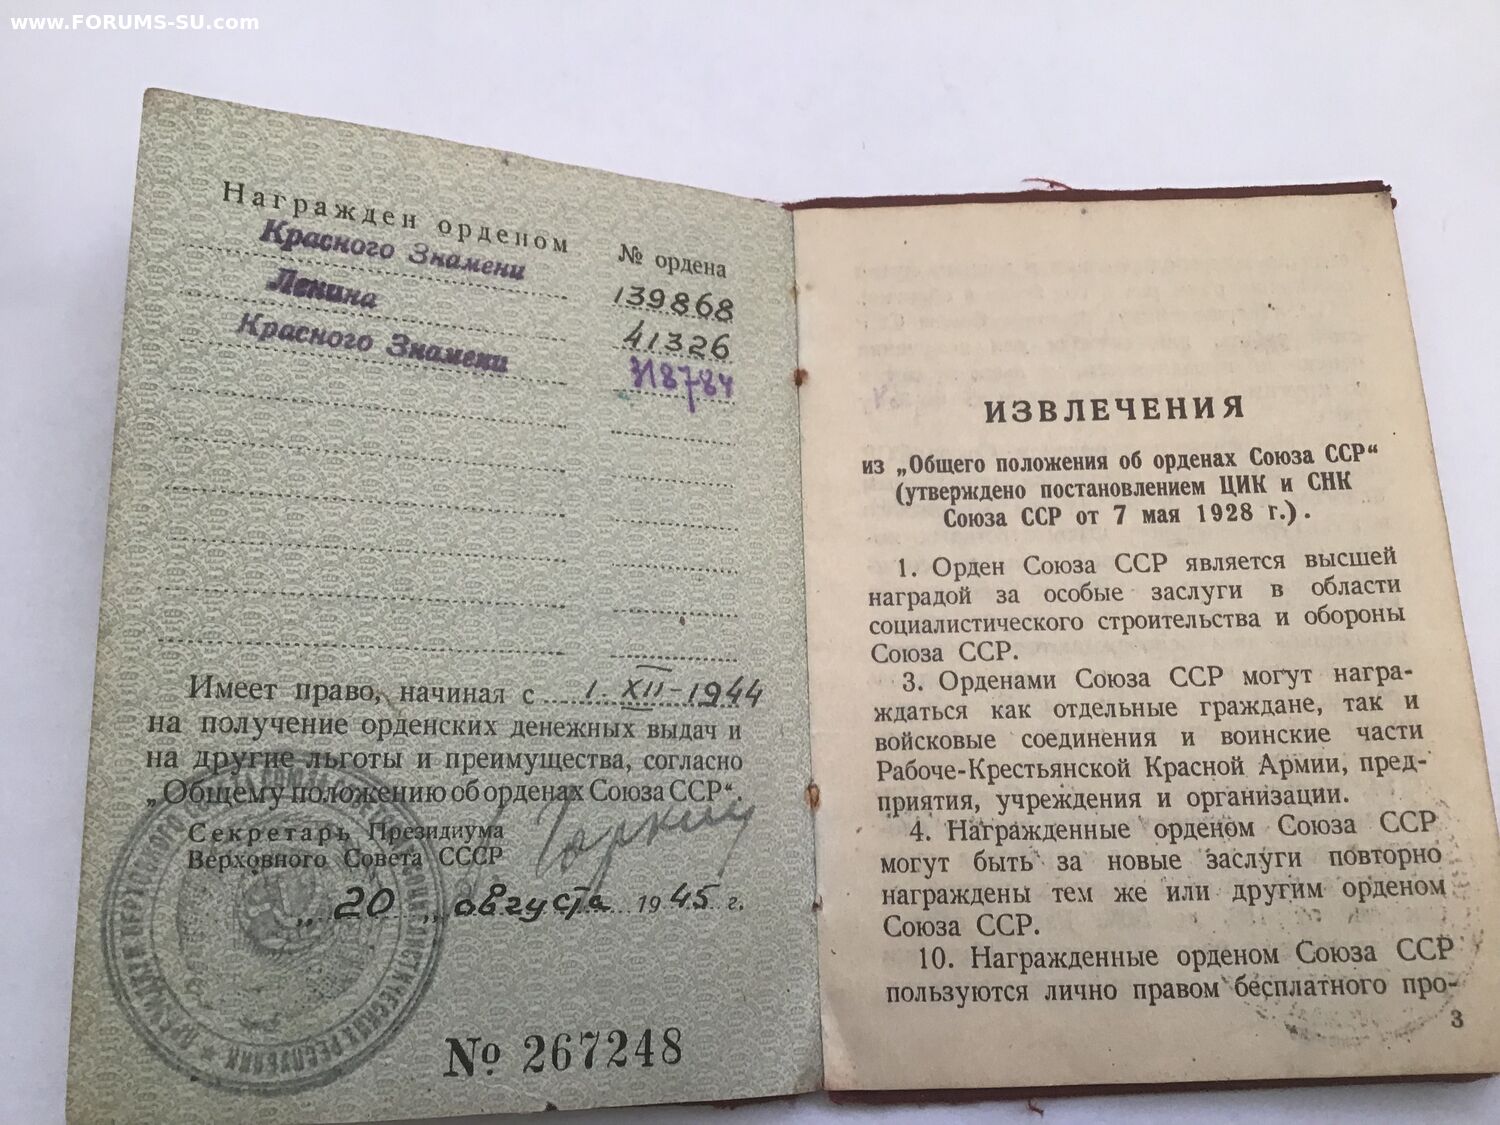 www.FORUMS-SU.com
Награжден орденом № ордена
Красного Знамени 139868
Ленина 41326
Красного Знамени 318784
Имеет право, начиная с 1. XII-1944
на получение орденских денежных выдач и
на другие льготы и преимущества, согласно
„Общему положению об орденах Союза ССР“.
Секретарь Президиума
Верховного Совета СССР
„ 20 „ августа 1945 г.
№ 267248
ИЗВЛЕЧЕНИЯ
из „Общего положения об орденах Союза ССР“
(утверждено постановлением ЦИК и СНК
Союза ССР от 7 мая 1928 г.).
1. Орден Союза ССР является высшей
наградой за особые заслуги в области
социалистического строительства и обороны
Союза ССР.
3. Орденами Союза ССР могут награ-
ждаться как отдельные граждане, так и
войсковые соединения и воинские части
Рабоче-Крестьянской Красной Армии, пред-
приятия, учреждения и организации.
4. Награжденные орденом Союза ССР
могут быть за новые заслуги повторно
награждены тем же или другим орденом
Союза ССР.
10. Награжденные орденом Союза ССР
пользуются лично правом бесплатного про-
3